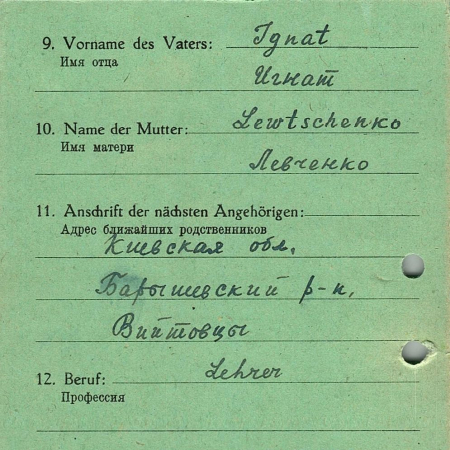 9. Vorname des Vaters: Ignat
Имя отца
Игнат
10. Name der Mutter: Lewtschenko
Имя матери
Левченко
11. Anschrift der nächsten Angehörigen:
Адрес ближайших родственников
Киевская обл.
Барышевский р-н,
Вийтовцы
12. Beruf: Lehrer
Профессия